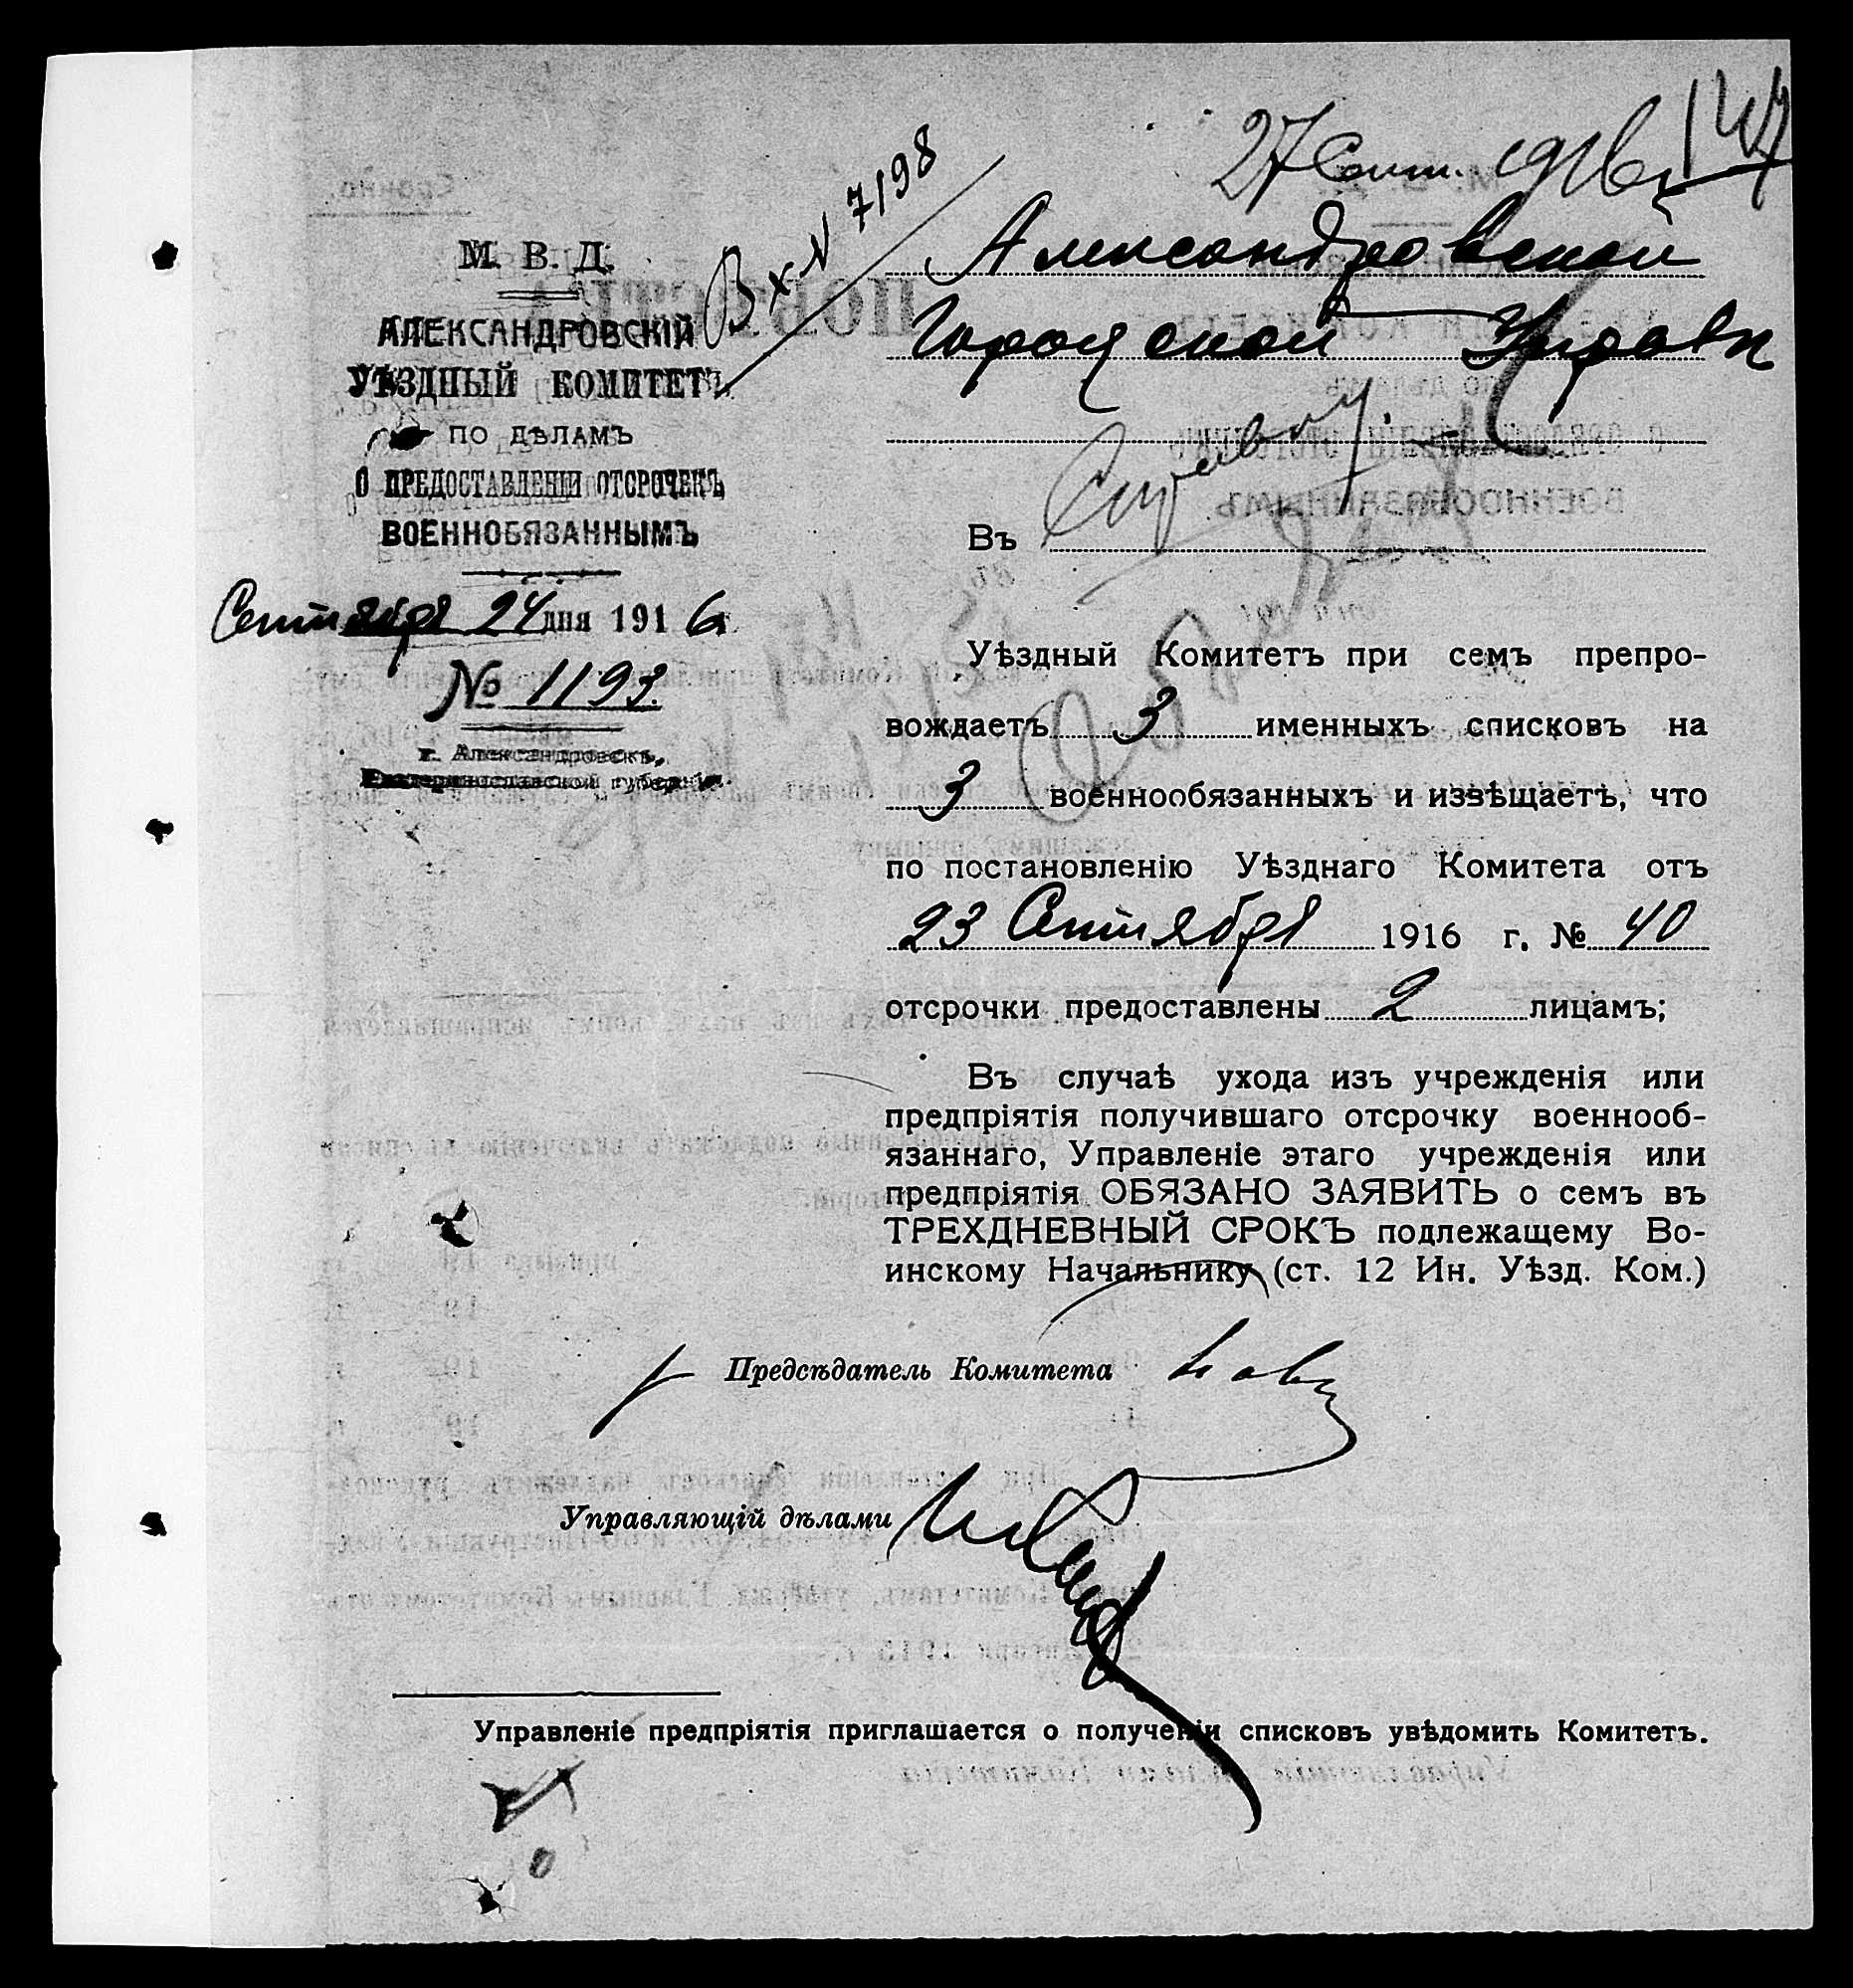 27 Сент. 1916 г.
147
Вх N 7198
М. В. Д.
АЛЕКСАНДРОВСКІЙ
УѢЗДНЫЙ КОМИТЕТЪ
ПО ДѢЛАМЪ
О ПРЕДОСТАВЛЕНІИ ОТСРОЧЕКЪ
ВОЕННОБЯЗАННЫМЪ
Сентября 24 дня 1916 г.
№ 1193.
г. Александровскъ,
Екатеринославской губерніи.
Александровской
Городской Управѣ
Въ
Уѣздный Комитетъ при семъ препро-
вождаетъ 3 именныхъ списковъ на
3 военнообязанныхъ и извѣщаетъ, что
по постановленію Уѣзднаго Комитета отъ
23 Сентября 1916 г. № 40
отсрочки предоставлены 2 лицамъ;
Въ случаѣ ухода изъ учрежденія или
предпріятія получившаго отсрочку военнооб-
язаннаго, Управленіе этаго учрежденія или
предпріятія ОБЯЗАНО ЗАЯВИТЬ о семъ въ
ТРЕХДНЕВНЫЙ СРОКЪ подлежащему Во-
инскому Начальнику (ст. 12 Ин. Уѣзд. Ком.)
Предсѣдатель Комитета
Управляющій дѣлами
Управленіе предпріятія приглашается о полученіи списковъ увѣдомить Комитетъ.